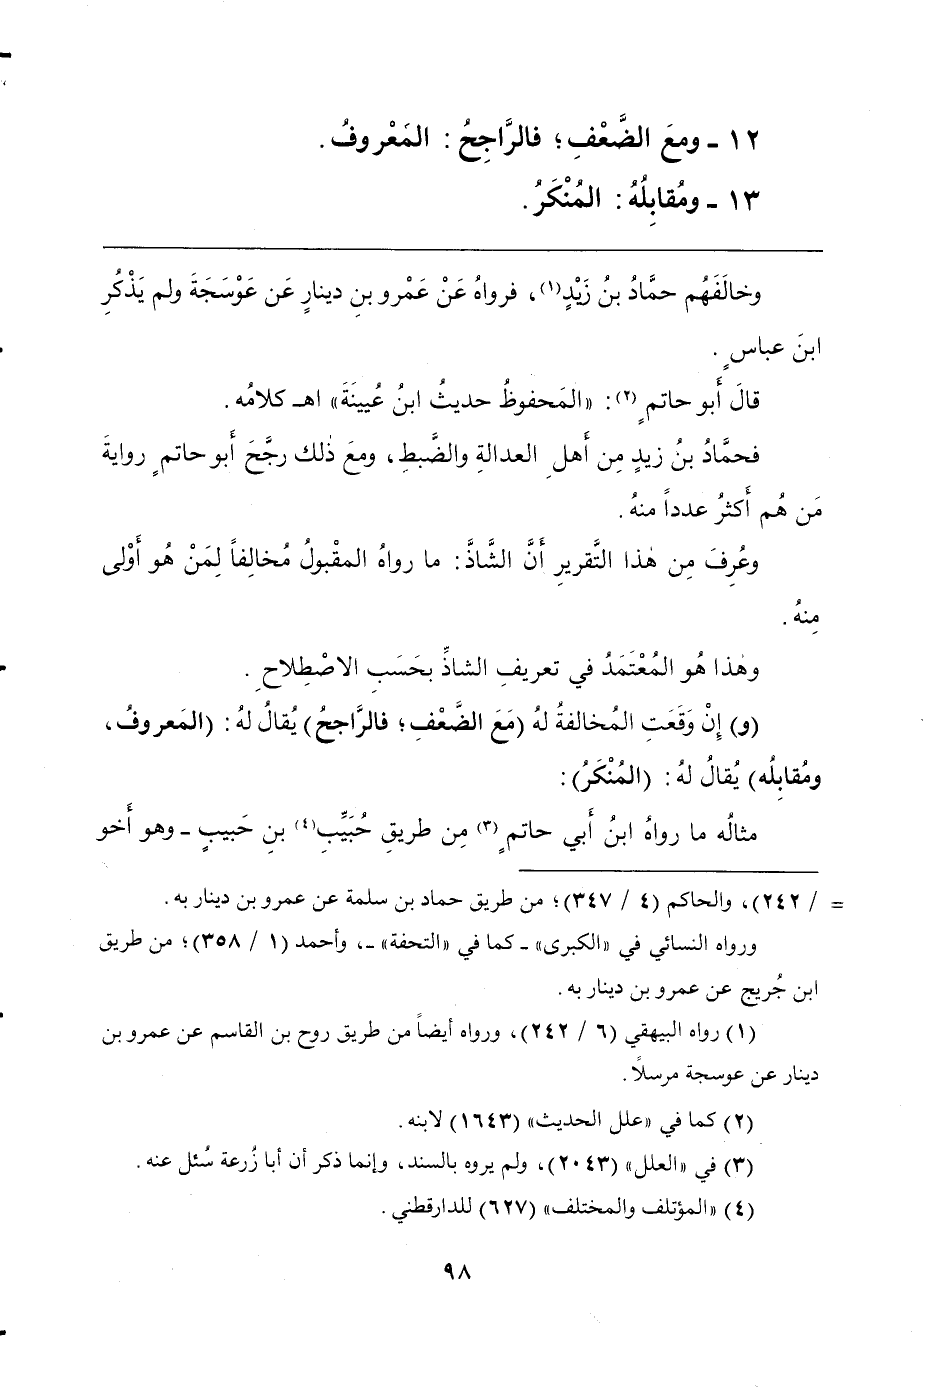 ١٢ ـ ومعَ الضَّعْفِ؛ فالرَّاجِحُ: المَعْروفُ.
١٣ ـ ومُقابِلُهُ: المُنْكَرُ.
وخالَفَهُم حمَّادُ بنُ زَيْدٍ(١)، فرواهُ عَنْ عَمْرو بنِ دينارٍ عَن عَوْسَجَةَ ولم يَذْكُرِ
ابنَ عباسٍ.
قالَ أَبو حاتمٍ(٢): «المَحفوظُ حديثُ ابنُ عُيينَةَ» اهـ كلامُه.
فحمَّادُ بنُ زيدٍ مِن أَهلِ العدالةِ والضَّبطِ، ومعَ ذٰلك رجَّحَ أَبو حاتمٍ روايةَ
مَن هُم أَكثرُ عدداً منهُ.
وعُرِفَ مِن هٰذا التَّقريرِ أَنَّ الشَّاذَّ: ما رواهُ المقْبولُ مُخالِفاً لِمَنْ هُو أَوْلى
مِنهُ.
وهٰذا هُو المُعْتَمَدُ في تعريفِ الشاذِّ بحَسَبِ الاصْطِلاحِ.
(و) إِنْ وَقَعَتِ المُخالفةُ لهُ (مَعَ الضَّعْفِ؛ فالرَّاجحُ) يُقالُ لهُ: (المَعروفُ،
ومُقابِلُه) يُقالُ لهُ: (المُنْكَرُ):
مثالُه ما رواهُ ابنُ أَبي حاتمٍ(٣) مِن طريقِ حُبَيِّبِ(٤) بنِ حَبيبٍ ـ وهو أَخو
= / ٢٤٢)، والحاكم (٤ / ٣٤٧)؛ من طريق حماد بن سلمة عن عمرو بن دينار به.
ورواه النسائي في «الكبرى» ـ كما في «التحفة» ـ، وأحمد (١ / ٣٥٨)؛ من طريق
ابن جُريج عن عمرو بن دينار به.
(١) رواه البيهقي (٦ / ٢٤٢)، ورواه أيضاً من طريق روح بن القاسم عن عمرو بن
دينار عن عوسجة مرسلًا.
(٢) كما في «علل الحديث» (١٦٤٣) لابنه.
(٣) في «العلل» (٢٠٤٣)، ولم يروه بالسند، وإنما ذكر أن أبا زُرعة سُئل عنه.
(٤) «المؤتلف والمختلف» (٦٢٧) للدارقطني.
٩٨